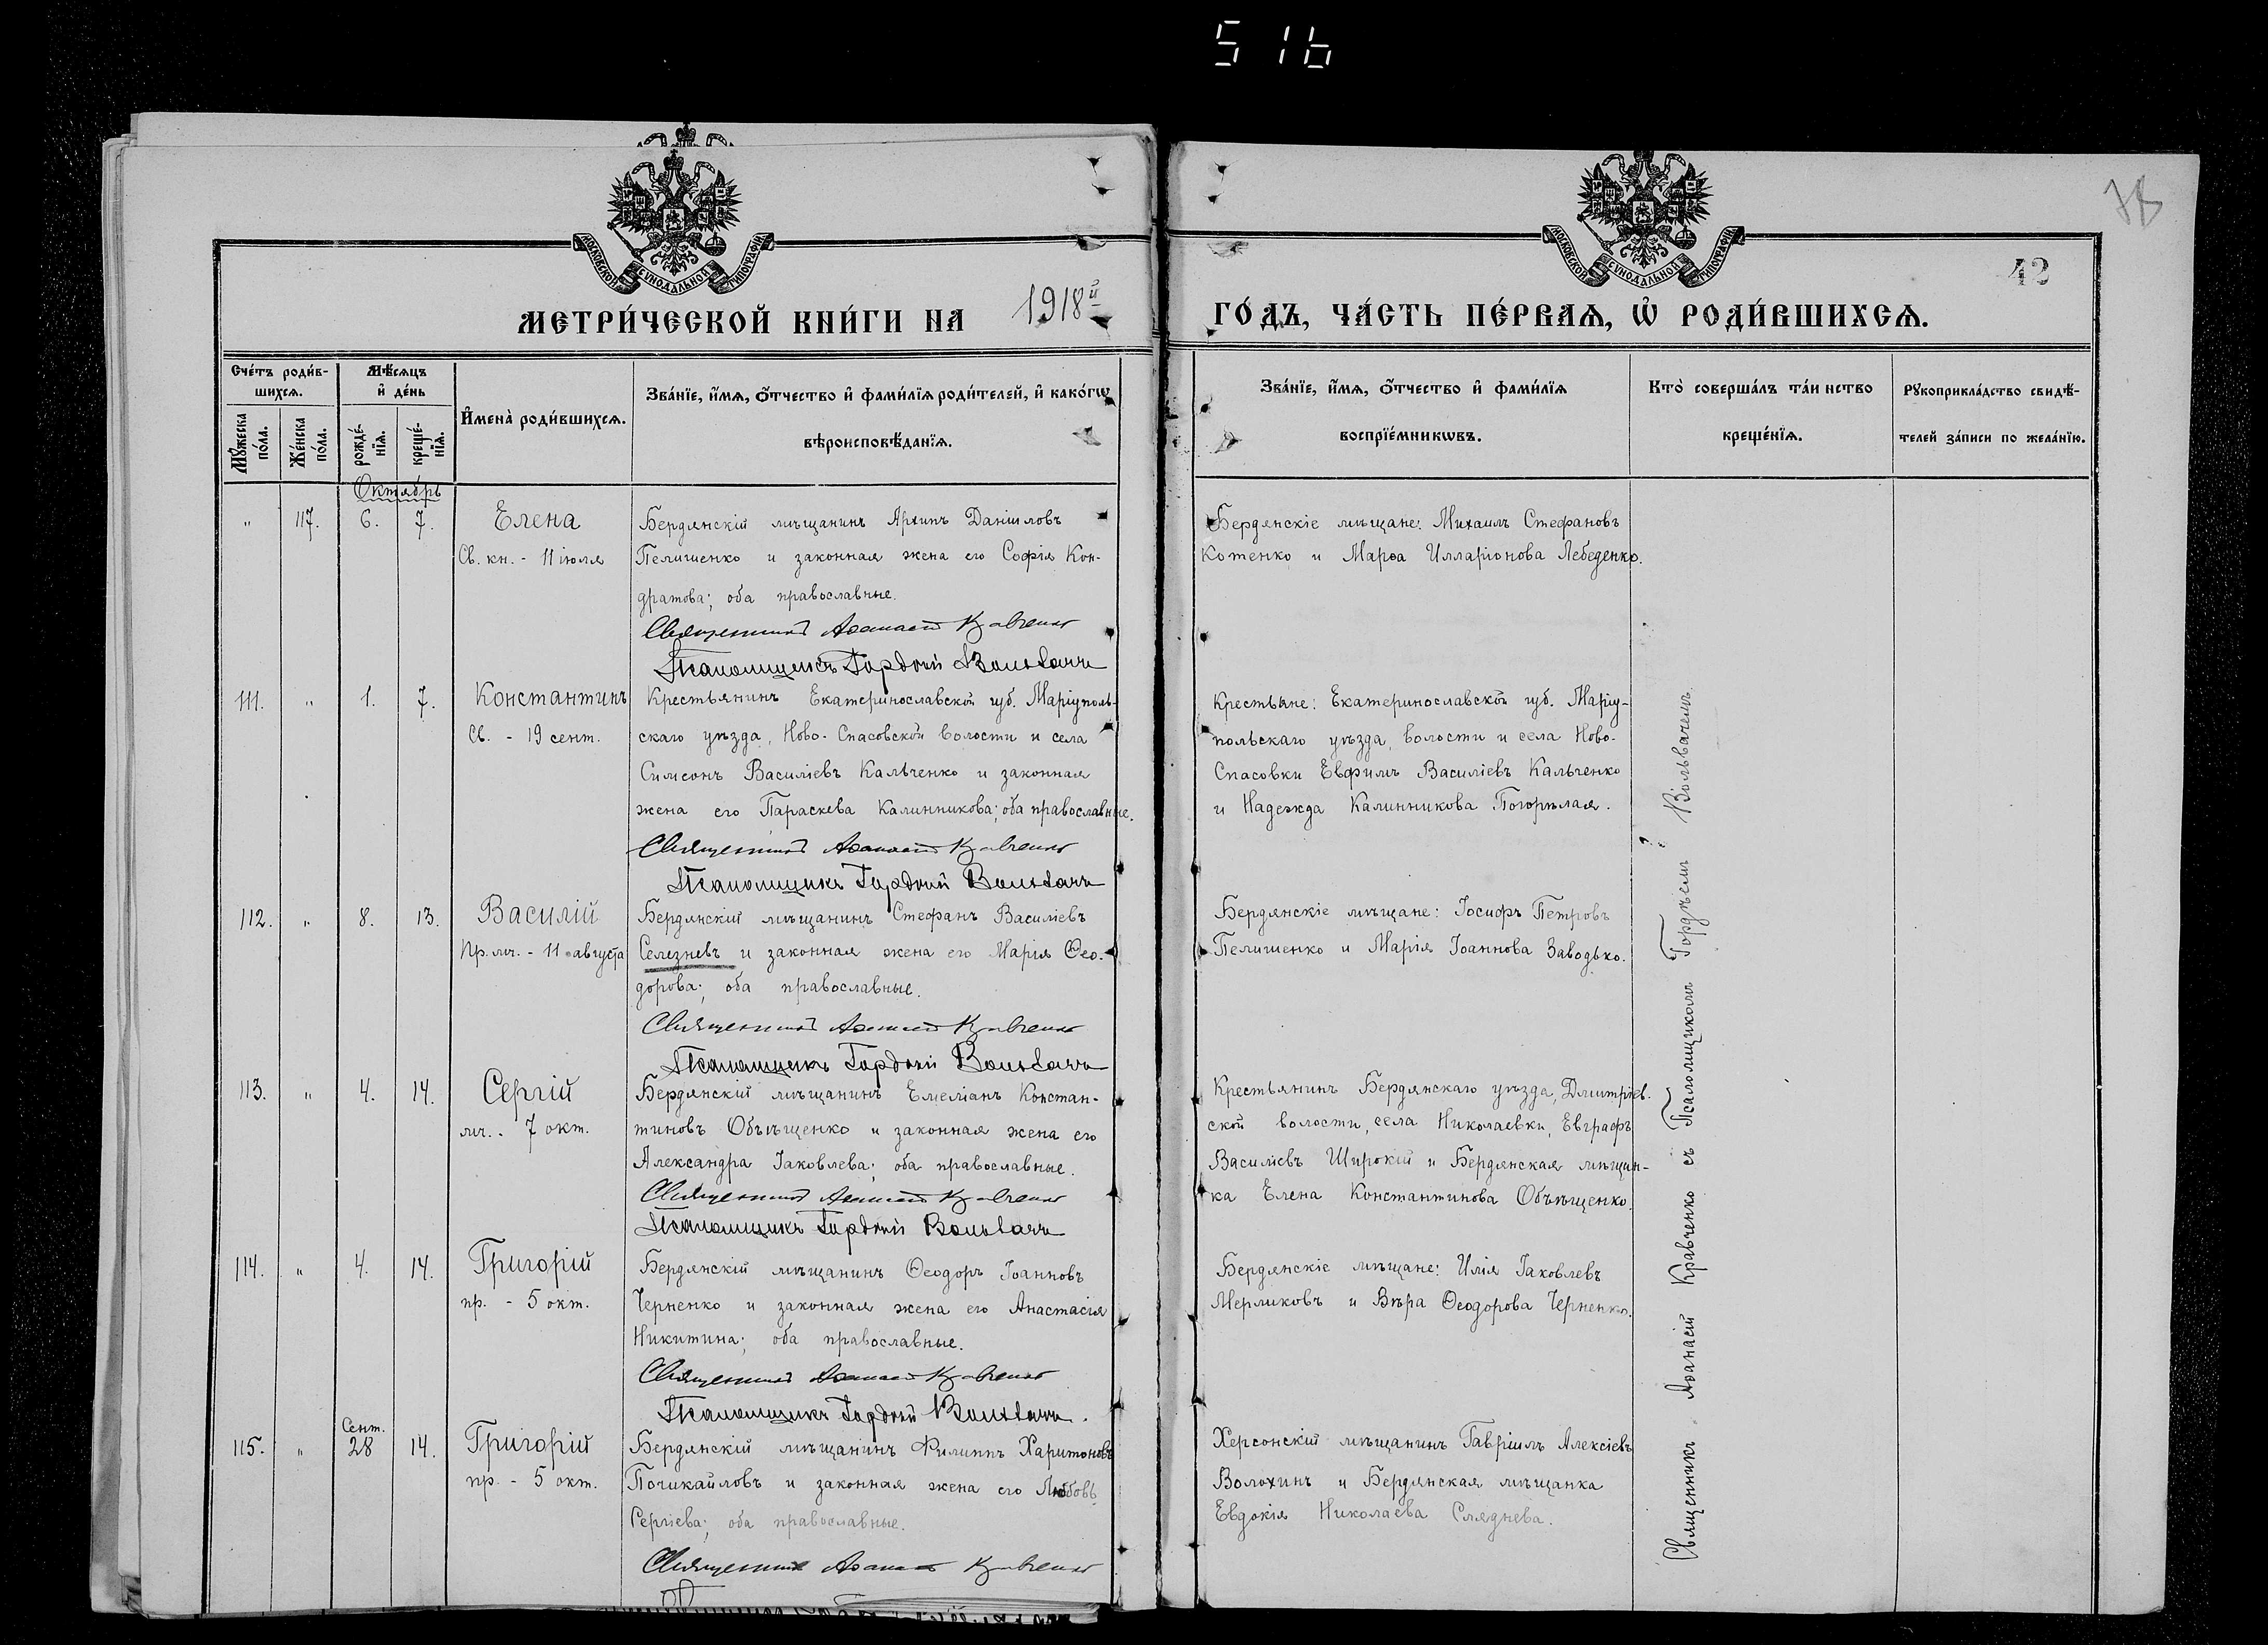 516
78
42
МОСКОВСКОЙ СѴНОДАЛЬНОЙ ТИПОГРАФІИ
МОСКОВСКОЙ СѴНОДАЛЬНОЙ ТИПОГРАФІИ
МЕТРИ́ЧЕСКОЙ КНИ́ГИ НА 1918й ГО́ДЪ, ЧА́СТЬ ПЕ́РВАѦ, Ѡ҆ РОДИ́ВШИХСѦ.
Сче́тъ роди́в-
шихсѧ.
Мѹ́жеска
по́ла.
Же́нска
по́ла.
Мѣ́сѧцъ
и҆ де́нь
рожде́-
нїѧ.
креще́-
нїѧ.
И҆мена̀ роди́вшихсѧ.
Зва́нїе, и҆́мѧ, ѻ҆́тчество и҆ фами́лїѧ роди́телей, и҆ како́гѡ
вѣроисповѣ́данїѧ.
Зва́нїе, и҆́мѧ, ѻ҆́тчество и҆ фами́лїѧ
воспрїе́мникѡвъ.
Кто̀ соверша́лъ та́инство
креще́нїѧ.
Рѹкоприкла́дство свидѣ́-
телей за́писи по жела́нїю.
Октябрь
" 117. 6. 7. Елена
Св. кн. - 11 іюля
Бердянскій мѣщанинъ Архипъ Даніиловъ
Пелишенко и законная жена его Софія Кон-
дратова; оба православные.
Священникъ Аѳанасій Кравченко
Псаломщикъ Гордѣй Вольвачъ
Бердянскіе мѣщане: Михаилъ Стефановъ
Котенко и Марѳа Илларіонова Лебеденко.
111. " 1. 7. Константинъ
Св. - 19 сент.
Крестьянинъ Екатеринославской губ. Маріуполь-
скаго уѣзда, Ново-Спасовской волости и села
Симеонъ Василіевъ Кальченко и законная
жена его Параскева Калинникова; оба православные.
Священникъ Аѳанасій Кравченко
Псаломщикъ Гордѣй Вольвачъ
Крестьяне: Екатеринославской губ. Маріу-
польскаго уѣзда, волости и села Ново-
Спасовки Евфимъ Василіевъ Кальченко
и Надежда Калинникова Погорѣлая.
112. " 8. 13. Василій
Пр. мч. - 11 августа
Бердянскій мѣщанинъ Стефанъ Василіевъ
Селезневъ и законная жена его Марія Ѳео-
дорова; оба православные.
Священникъ Аѳанасій Кравченко
Псаломщикъ Гордѣй Вольвачъ
Бердянскіе мѣщане: Іосифъ Петровъ
Пелишенко и Марія Іоаннова Заводько.
113. " 4. 14. Сергій
мч. - 7 окт.
Бердянскій мѣщанинъ Емеліанъ Констан-
тиновъ Объѣщенко и законная жена его
Александра Іаковлева; оба православные.
Священникъ Аѳанасій Кравченко
Псаломщикъ Гордѣй Вольвачъ
Крестьянинъ Бердянскаго уѣзда, Дмитріев-
ской волости, села Николаевки, Евграфъ
Василіевъ Широкій и Бердянская мѣщан-
ка Елена Константинова Объѣщенко.
114. " 4. 14. Григорій
пр. - 5 окт.
Бердянскій мѣщанинъ Ѳеодоръ Іоанновъ
Черненко и законная жена его Анастасія
Никитина; оба православные.
Священникъ Аѳанасій Кравченко
Псаломщикъ Гордѣй Вольвачъ.
Бердянскіе мѣщане: Илія Іаковлевъ
Мерликовъ и Вѣра Ѳеодорова Черненко.
Сент.
115. " 28 14. Григорій
пр. - 5 окт.
Бердянскій мѣщанинъ Филиппъ Харитоновъ
Почикайловъ и законная жена его Любовь
Сергіева; оба православные.
Священникъ Аѳанасій Кравченко
Херсонскій мѣщанинъ Гавріилъ Алексіевъ
Волохинъ и Бердянская мѣщанка
Евдокія Николаева Следнева.
Священникъ Аѳанасій Кравченко съ Псаломщикомъ Гордѣемъ Вольвачемъ